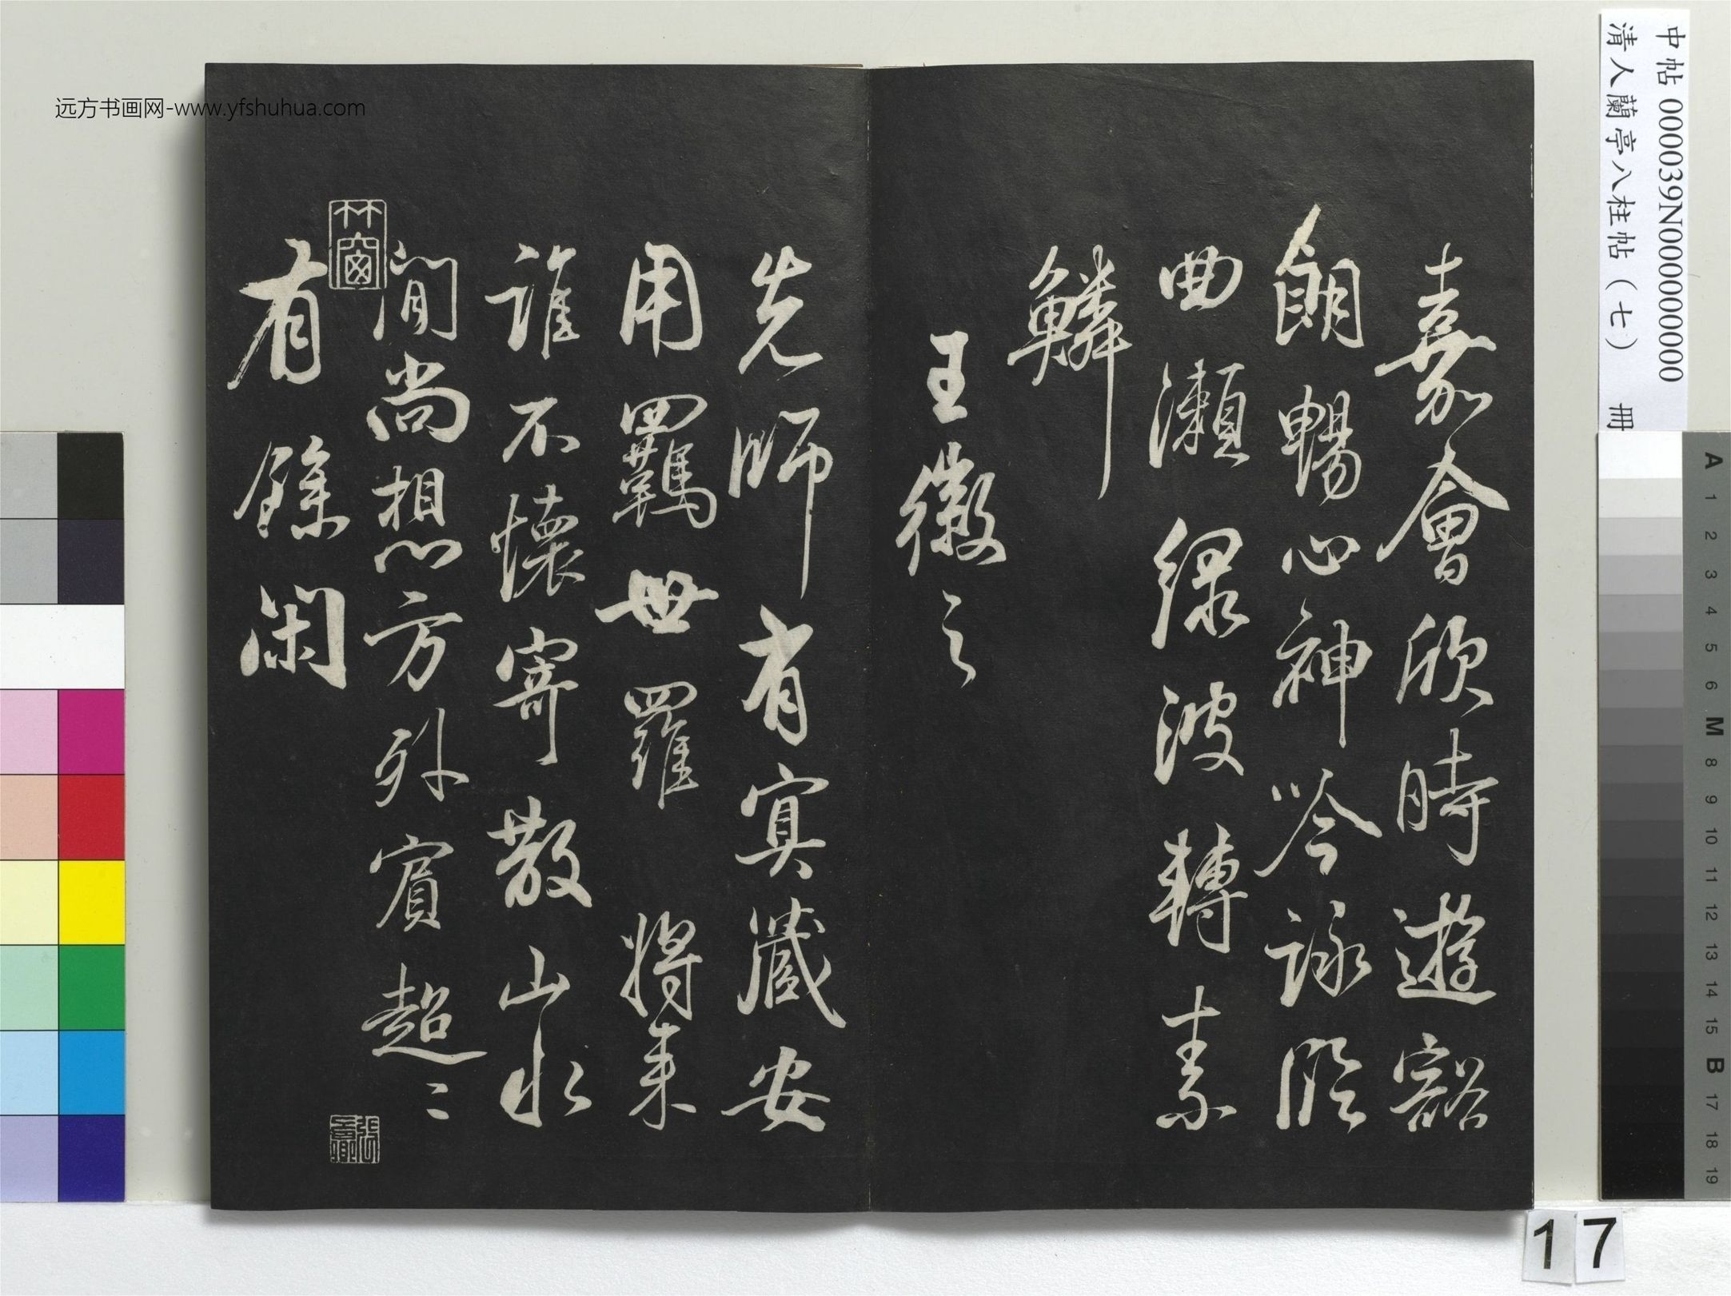 远方书画网-www.yfshuhua.com
中帖 000039N000000000
清人蘭亭八柱帖（七） 冊
嘉會欣時遊豁
朗暢心神吟詠臨
曲瀨綠波轉素
鱗
王徽之
先師有冥藏安
用羈世羅將来
誰不懷寄散山水
間尚想方外賓超〻
有餘閑
竹窗
A
1
2
3
4
5
6
M
8
9
10
11
12
13
14
15
B
17
18
19
17